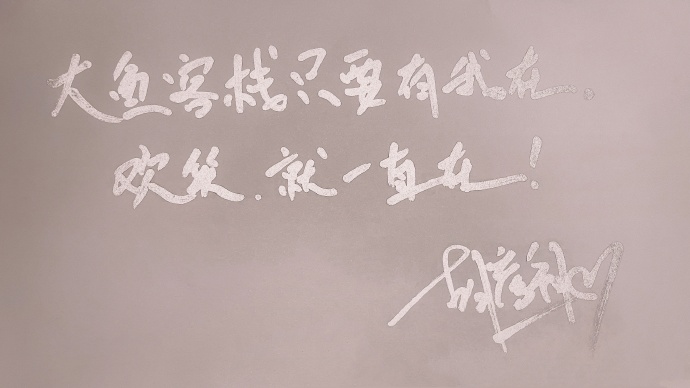 大鱼客栈只要有我在.
欢笑.就一直在!